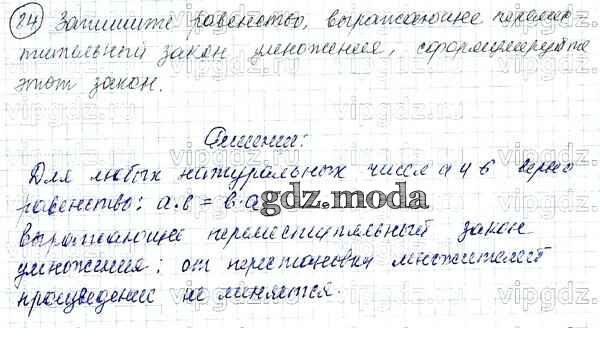 24) Запишите равенство, выражающее перемес-
тительный закон умножения, сформулируйте
этот закон.
Решение:
Для любых натуральных чисел a и b верно
равенство: a·b = b·a
gdz.moda
выражающее переместительный закон
умножения: от перестановки множителей
произведение не меняется.